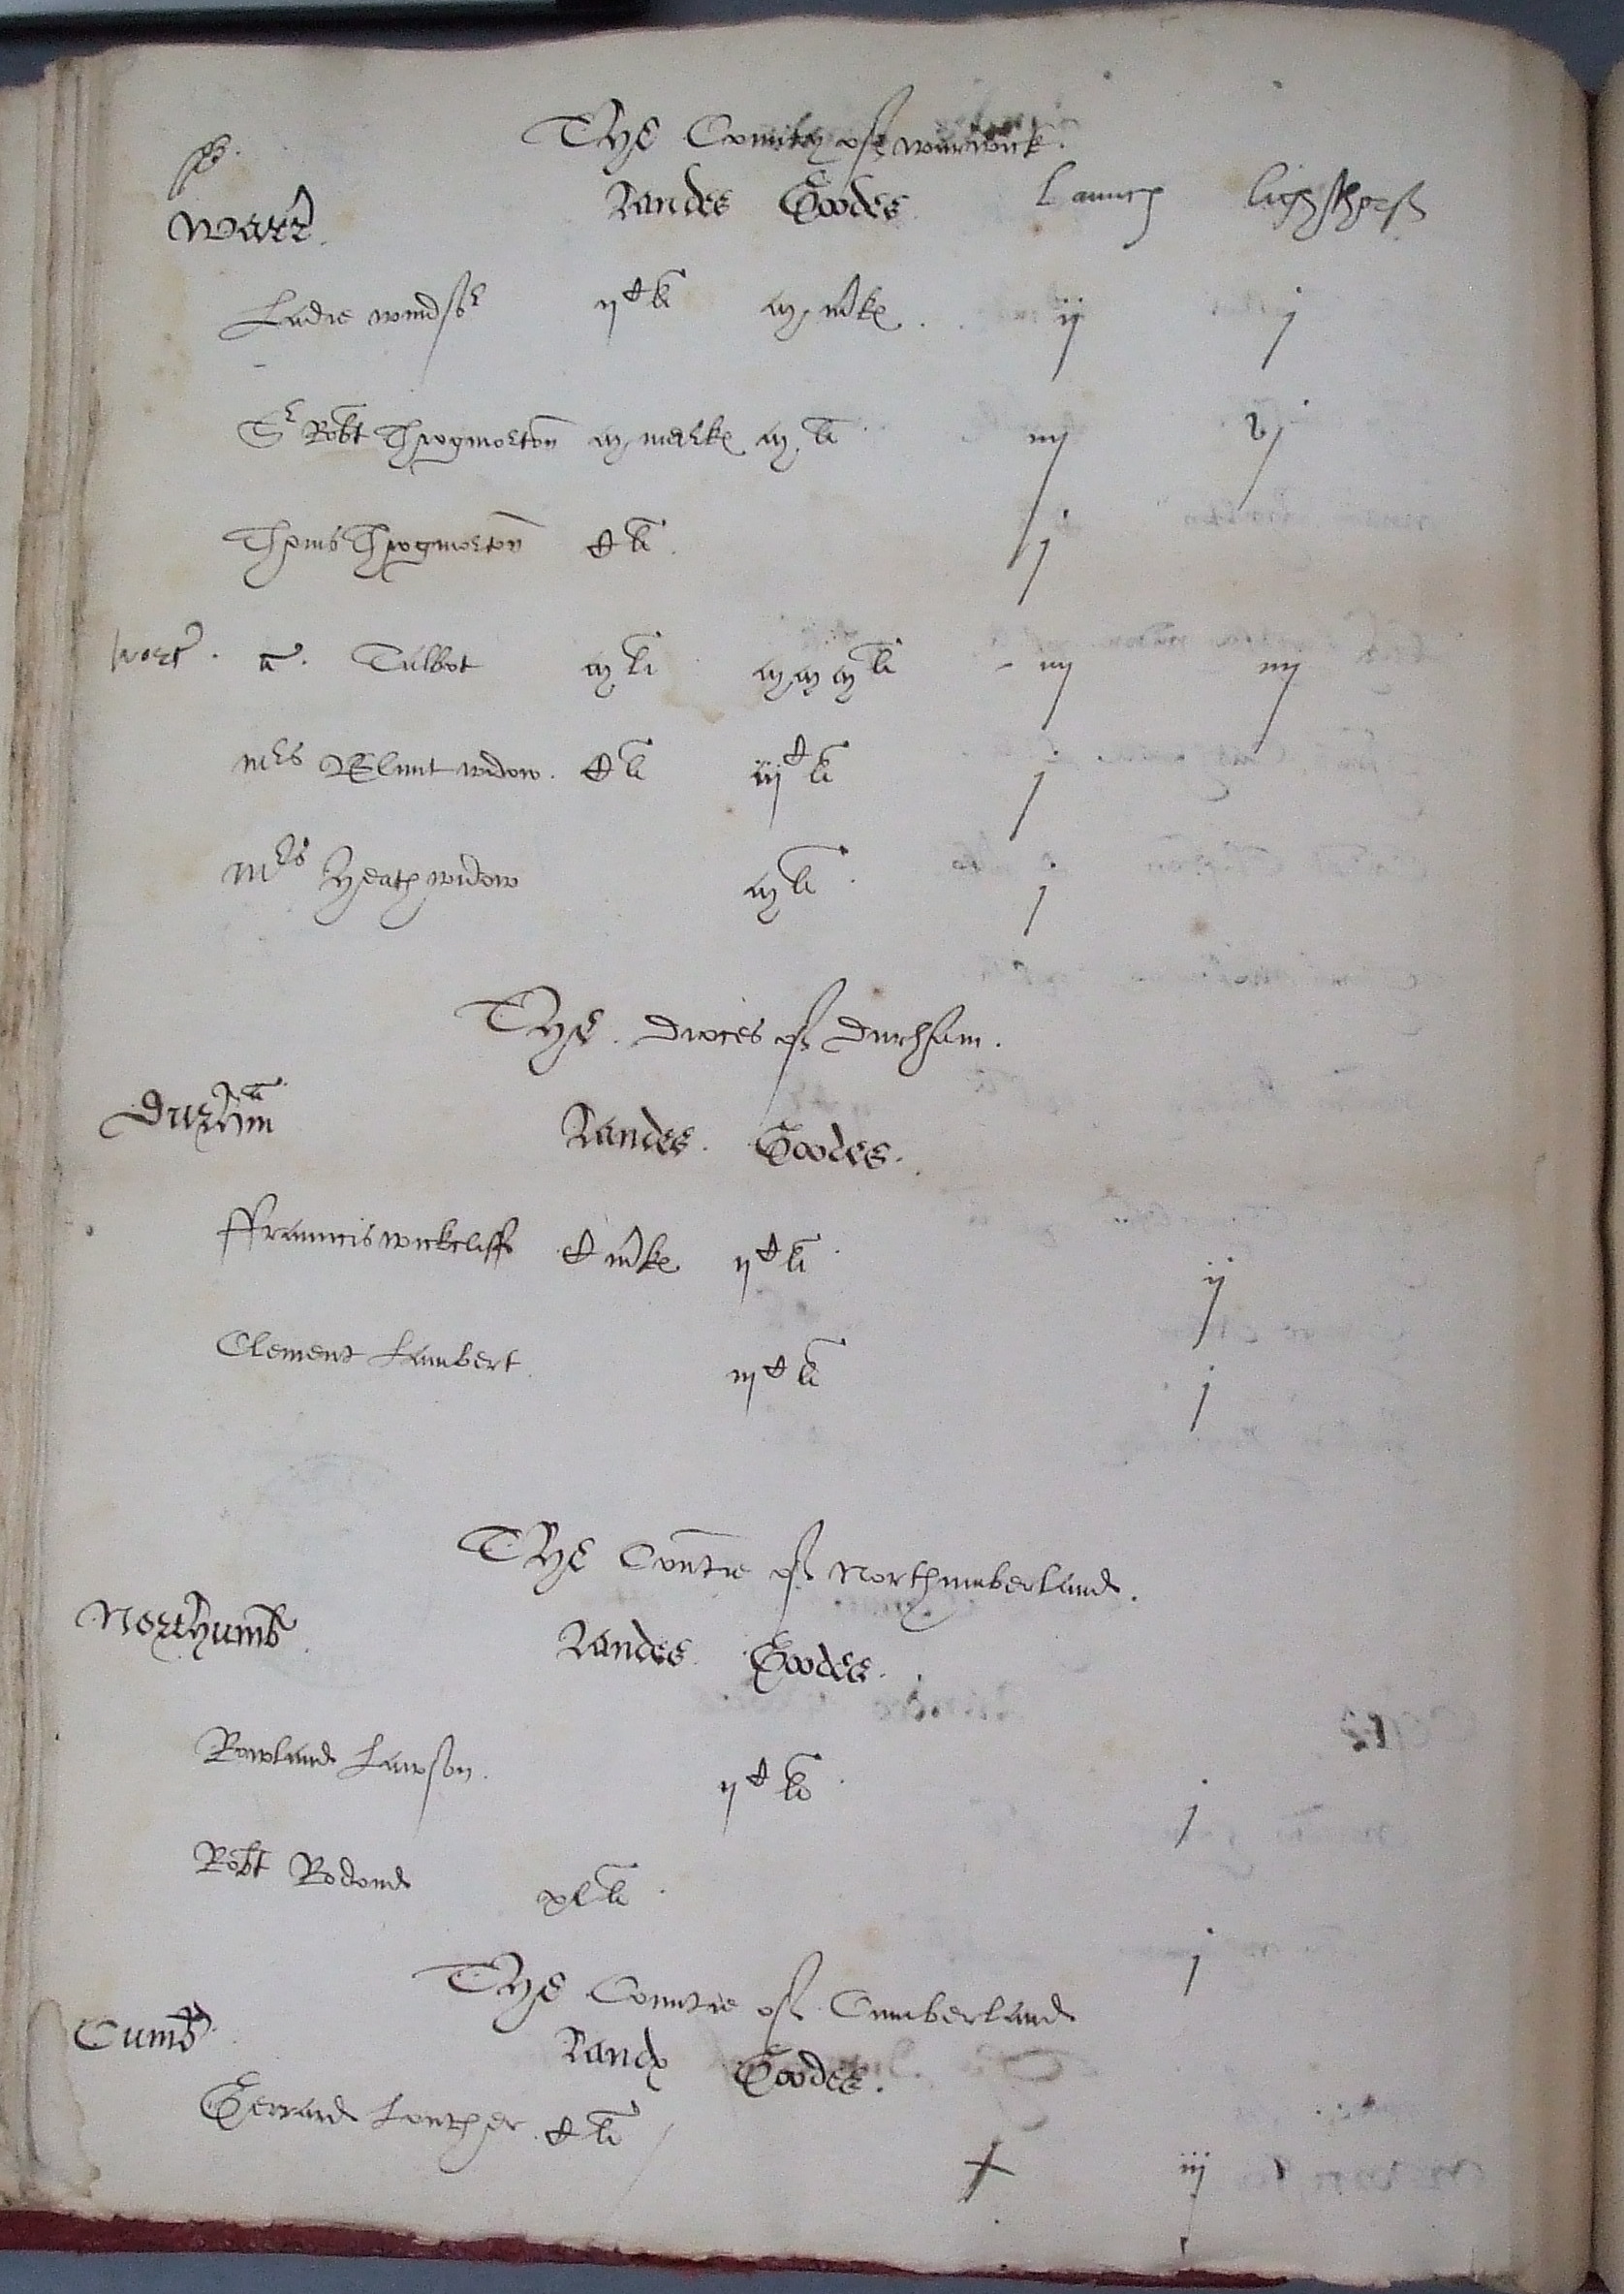 The Countey of warwick.
Warr. Landes Goodes Launch lightthorse
Ladie windsor ij C li m mke ij j
Sr Robt Throgmorton m marke m li iiij vj
Thoms Throgmorton C li j
wort Talbot m li m m m li iiij iiij
mrs Blunt widow. C li iij C li j
Mrs Heath widow m li j
The Dioces of Durham.
Durham Landes. Goodes.
ffrauncis wickcliff C mke ij C li ij
Clement Lambert iij C li j
The Countie of Northumberland.
Northumb Landes Goodes.
Rowland Lawson. ij C li j
Robt Rodom xl li j
The Countie of Cumberland
Cumb Landes Goodes.
Gerrard Lowther C li iij